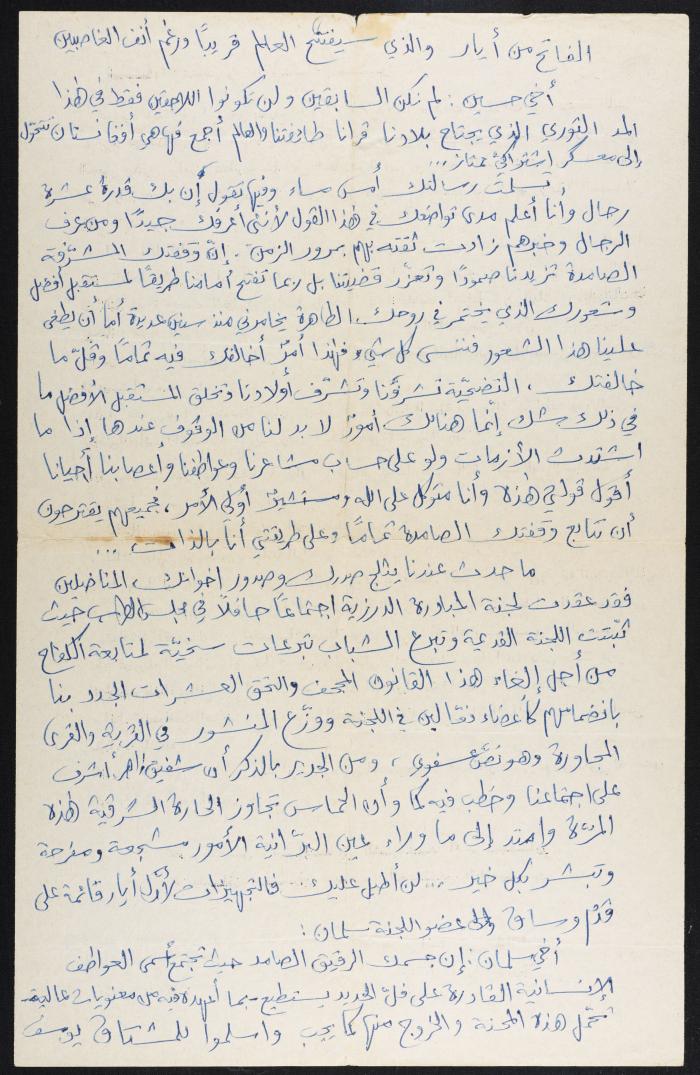 الفاتح من أيار والذي سيفتتح العالم قريبًا ورغم أنف الغاصبين
أخي حسين : لم نكن السابقين ولن نكونوا اللاحقين فقط في هذا
المد الثوري الذي يجتاح بلادنا قرانا طائفتنا والعالم أجمع فها هي أفغانستان تتحول
إلى معسكر اشتراكيّ ممتاز ...
تسلمت رسالتك أمس مساء وفيها تقول إن بك قدرة عشرة
رجال وأنا أعلم مدى تواضعك في هذا القول لأنني أعرفك جيدًا ومن عرف
الرجال وخبرهم زادت ثقته بهم بمرور الزمن . إنّ وقفتك المشرّفة
الصامدة تزيدنا صمودًا وتعزّز قضيتنا بل ربما تفتح أمامنا طريقًا لمستقبل أفضل
وشعورك الذي يختمر في روحك الطاهرة يخامرني منذ سنين عديدة أما أن يطغى
علينا هذا الشعور فننسى كل شيء فهذا أمرٌ أخالفك فيه تمامًا وقلّ ما
خالفتك ، التضحيّة تشرفنا وتشرّف أولادنا وتخلق المستقبل الأفضل ما
في ذلك شك إنّما هنالك أمورٌ لا بد لنا من الوقوف عندها إذا ما
اشتدت الأزمات ولو على حساب مشاعرنا وعواطفنا وأعصابنا أحيانا
أقول قولتي هذه وأنا متوكل على الله ومستشيرٌ أولي الأمر ، فجميعهم يقترحون
أن تتابع وقفتك الصامدة تمامًا وعلى طريقتي أنا بالذات ... !
ما حدث عندنا يثلج صدرك وصدور اخوانك المناضلين
فقد عقدت لجنة المبادرة الدرزية اجتماعًا حافلًا في مجلس حيث
ثبّتت اللجنة الفرعية وتبرع الشباب تبرعات سخيّة لمتابعة الكفاح
من أجل إلغاء هذا القانون المجحف والتحق العشرات الجدد بنا
بانضمامهم كأعضاء فعّالين في اللجنة ووزّع المنشور في القرية والقرى
المجاورة وهو نصّ عفوي ، ومن الجدير بالذكر أن شفيق أشرف
على اجتماعنا وخطب فيه كما وأن الحماس تجاوز الحارة الشرقية هذه
المرّة وامتد إلى ما وراء عين البرّانية الأمور مشجعة ومفرحة
وتبشر بكل خير .. لن أطيل عليك فالتجهيزات لأوّل أيار قائمة على
قدم وساق وإلى عضو اللجنة سلمان :
أخي سلمان : إن جسمك الرقيق الصامد حيث تجتمع أسمى العواطف
الإنسانية القادرة على فلّ الحديد يستطيع - بما أعهده فيه من معنويات عالية -
تحمّل هذه المحنة والخروج منها كما يجب واسلموا للمشتاق يوسف